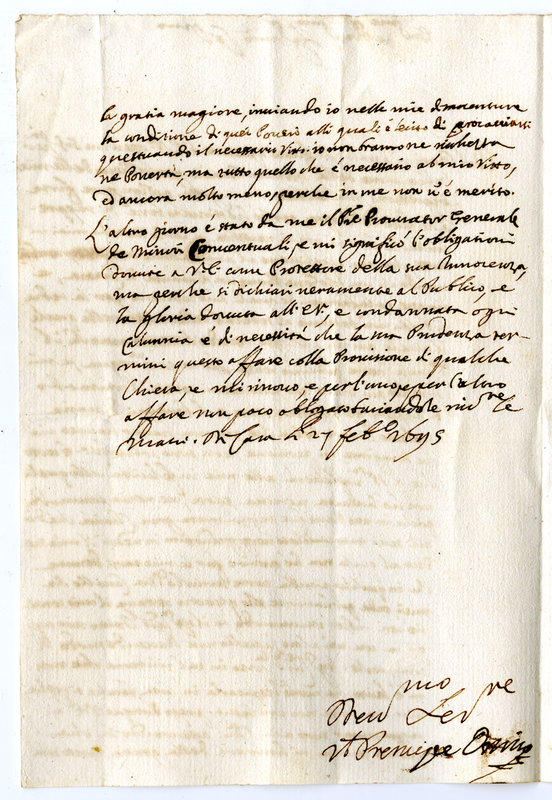 la gratia magiore, inviando io nelle mie disaventure
la conditione di quei Poveri alli quali é lecito di procacciarsi
questuando il necessario Vitto. io non bramo ne richezza
ne Povertà, ma tutto quello che é necessario al mio Vitto,
ed ancora molto meno, perche in me non v'é merito.
L'altro giorno é stato da me il Pre Procurator Generale
de Minori Conventuali, e mi significó l'obligationi
dovute a V.E. come Protettore della sua Innocenza,
ma perche si dichiari veramente al Publico, e
la gloria dovuta all' EV, e condannata ogni
Calunnia é di necessitá che la sua Prudenza ter-
mini questo affare colla Provisione di qualche
Chiesa, e mi rinovo, e per l'uno, e per l'altro
affare non poco obligato baciandole rivte le
mani. Di Casa li 27 febo 1695
Devmo Servre
Il Prencipe